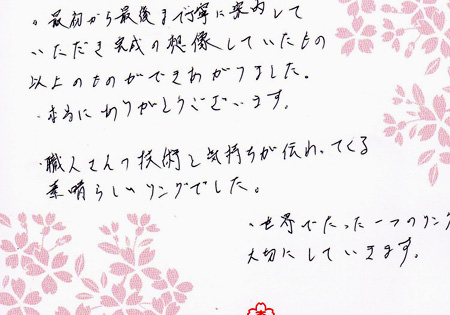 ・最初から最後まで丁寧に案内して
いただき完成の想像していたもの
以上のものができあがりました。
・本当にありがとうございます。
・職人さんの技術と気持ちが伝わってくる
素晴らしいリングでした。
・世界でたった一つのリング
大切にしていきます。